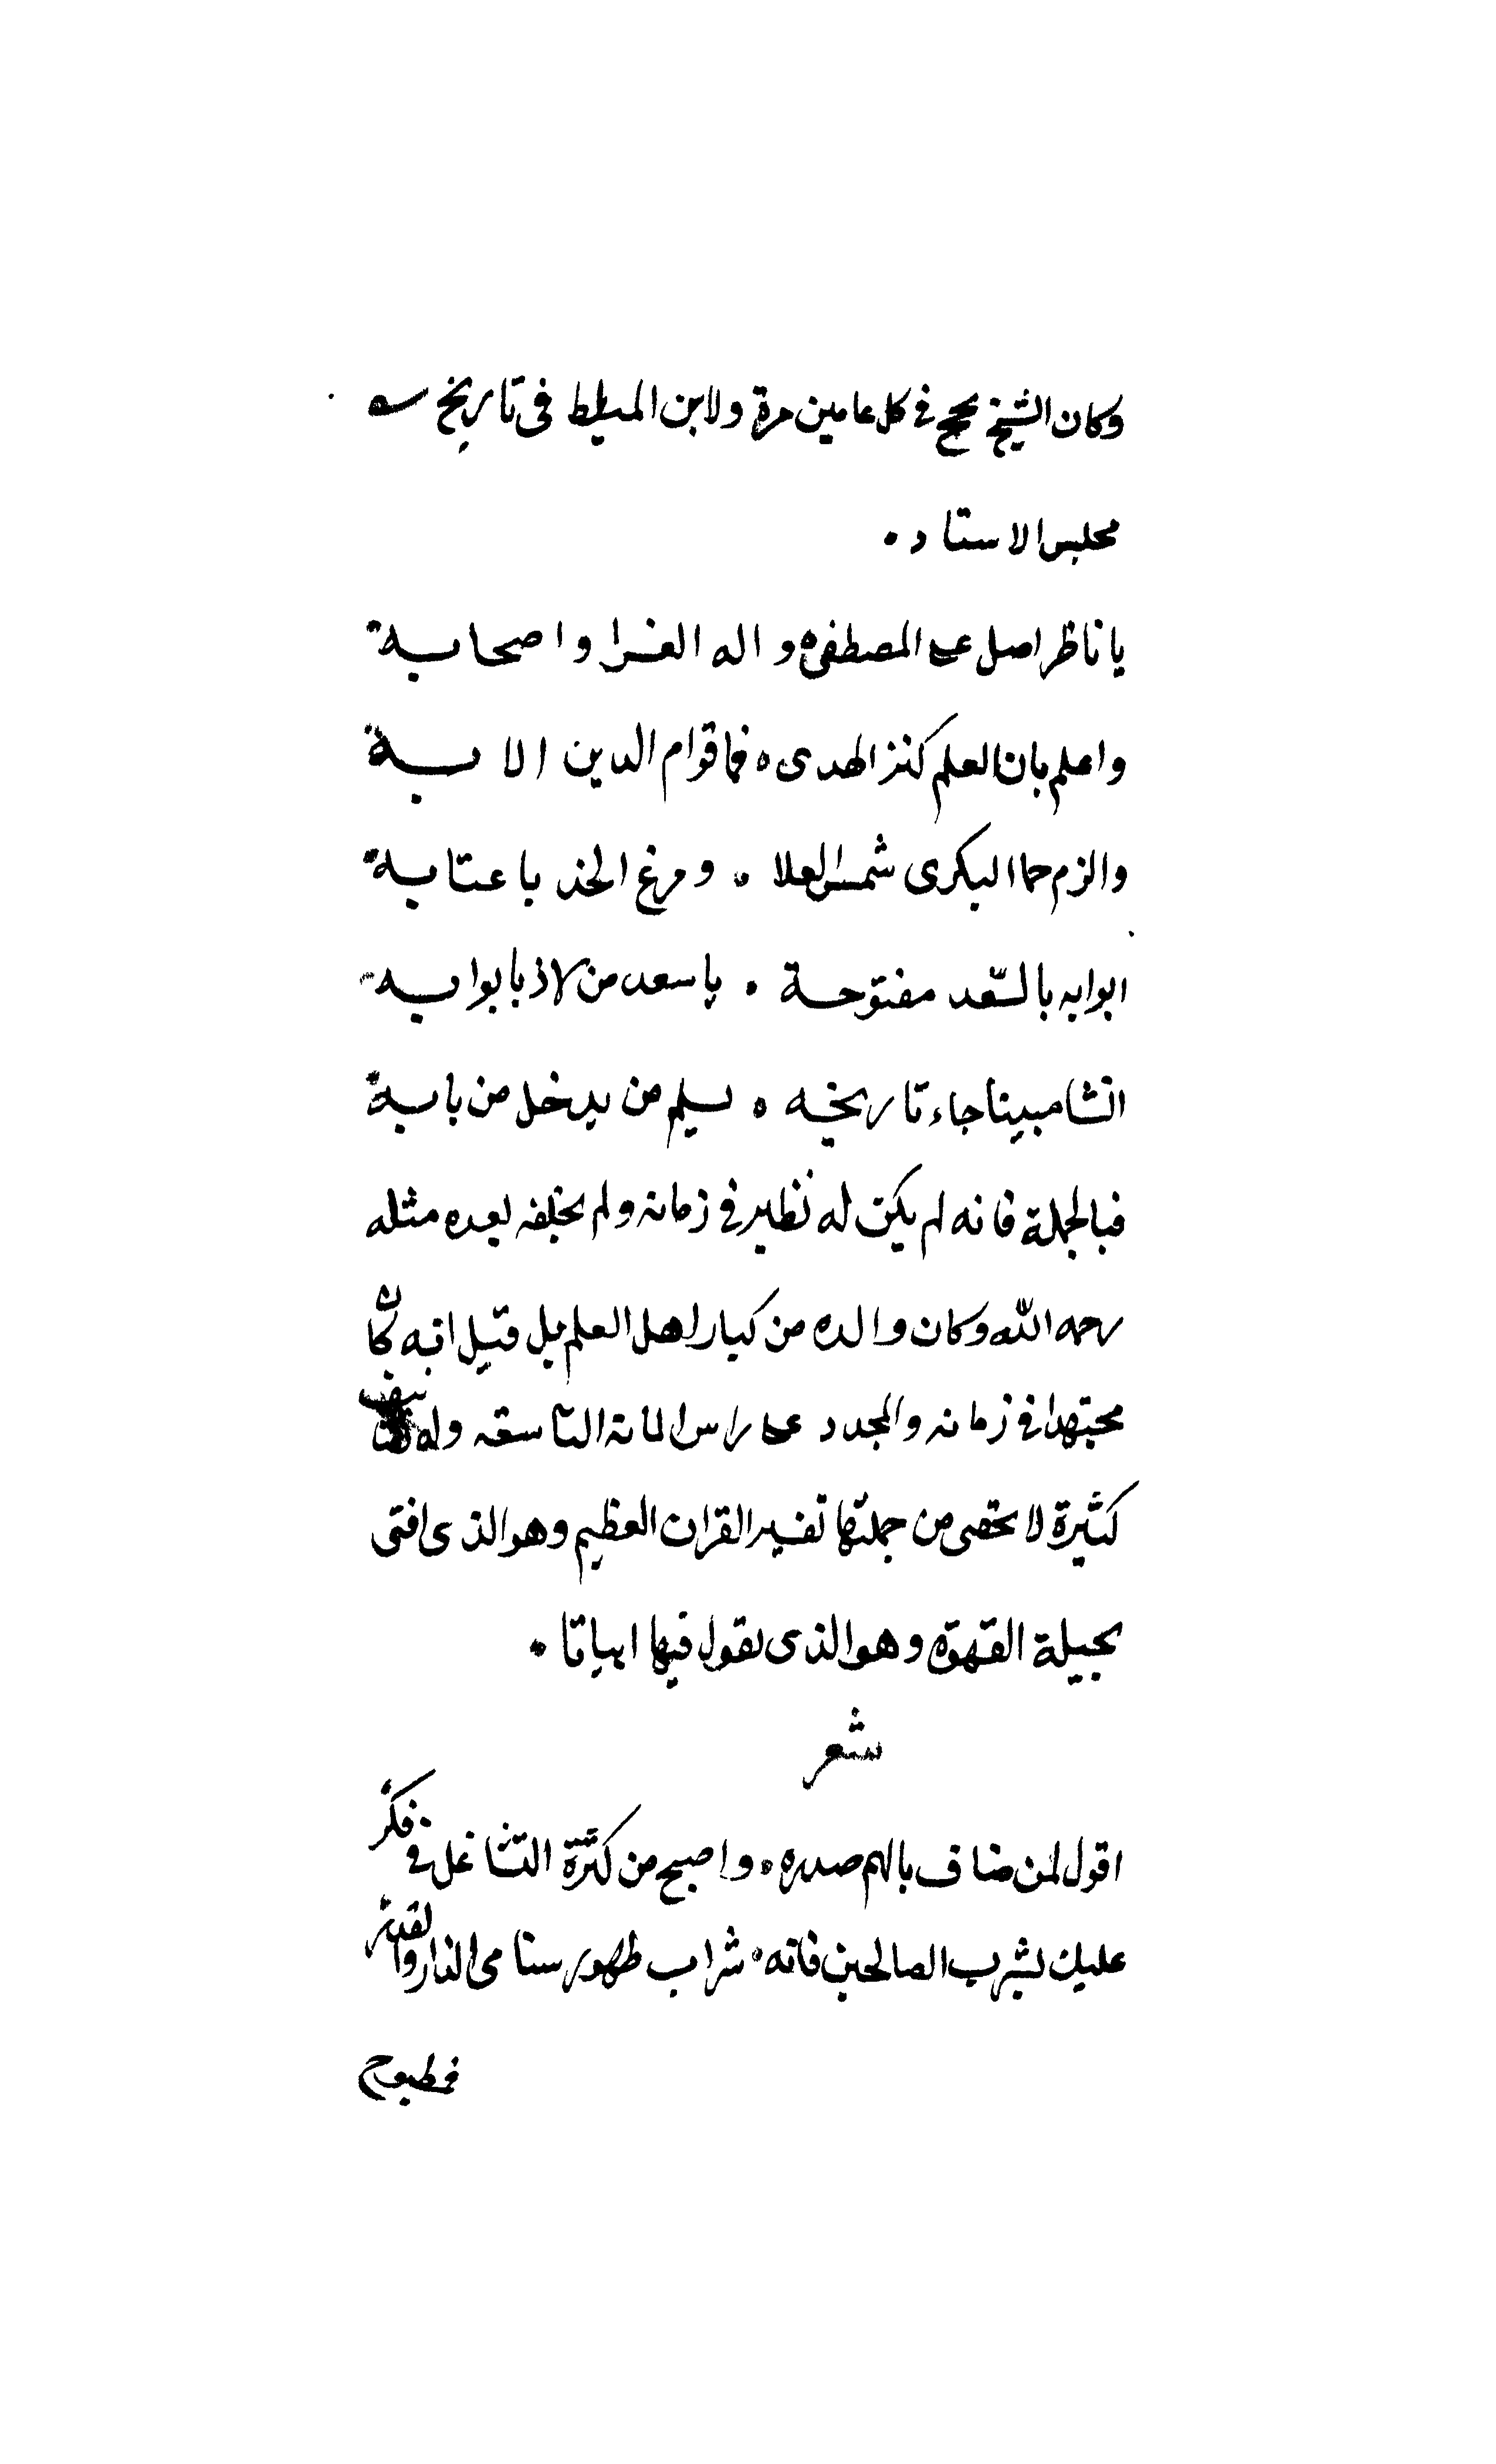 وكان الشيخ يحج في كل عامين مرة ولابن المبلط في تاريخ
مجلس الاستاد .
يا ناظرا صل على المصطفى ه واله الغرا واصحابه
واعلم بان العلم كنز الهدى ه فما قوام الدين الا به
والزم حما البكرى شمس العلا . ومرغ الخد باعتابه
ابوابه بالسّعد مفتوحة . يا سعد من لاذ بابوابه
انشا مبينا جاء تاريخه ه يسلم من يدخل من بابه
فبالجملة فانه لم يكن له نظير في زمانه ولم يخلفه بعده مثله
رحمه الله وكان والده من كبار اهل العلم بل قيل انه كان
مجتهدا في زمانه والمجدد على راس المائة التاسعه وله
كثيرة لا تحصى من جملتها تفسير القران العظيم وهو الذى افتى
بحيلة القهوة وهو الذى يقول فيها ابياتا .
شعر
اقول لمن ضاق بالهم صدره . واصبح من كثرة التشاغل في فكر
عليك بشرب الصالحين فانه . شراب طهور سنا مى الذار والقدر
فمطبوح